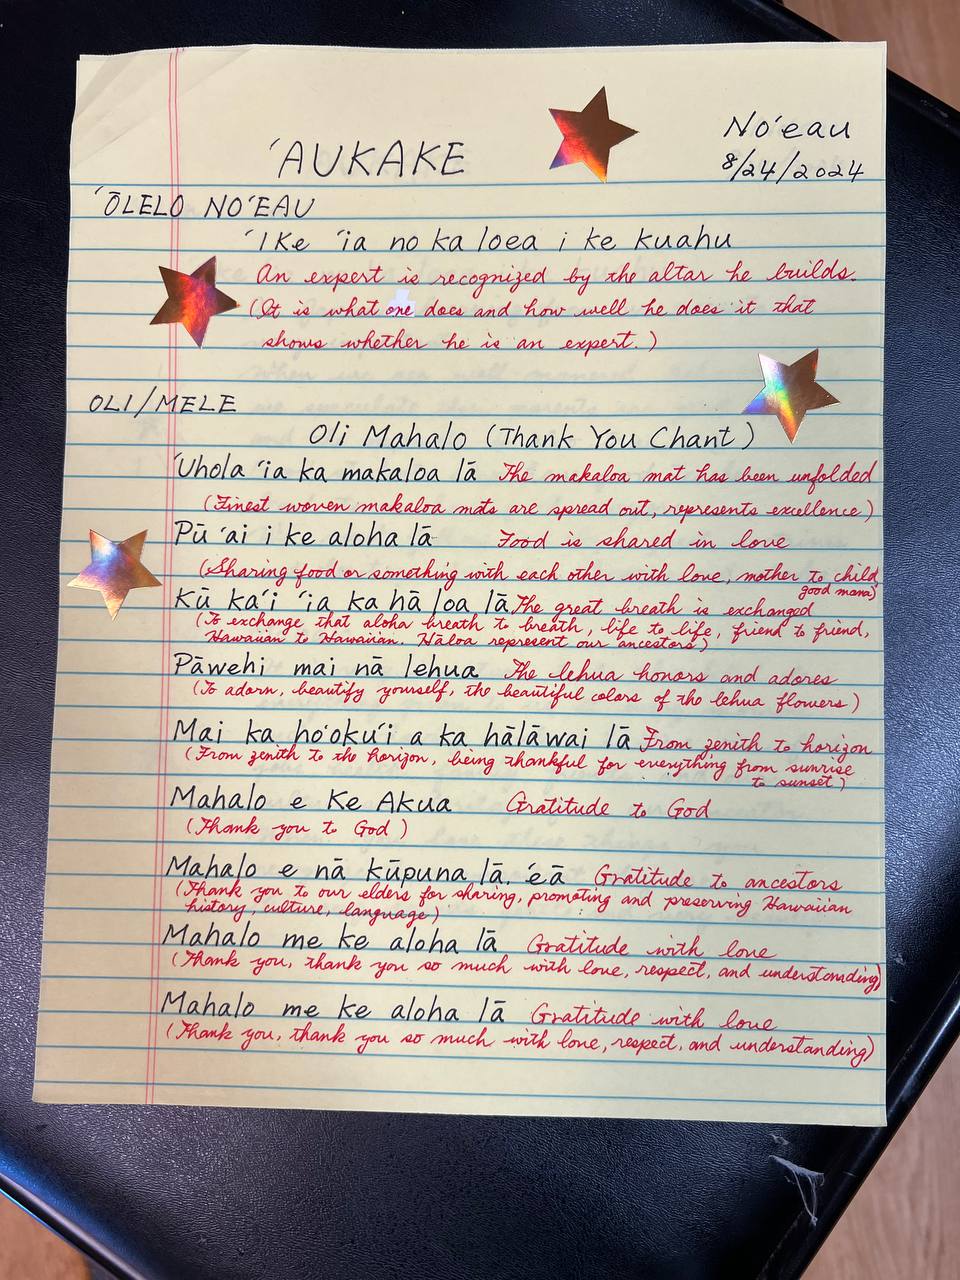 No'eau
'AUKAKE
8/24/2024
'ŌLELO NO'EAU
'IKe 'ia no ka loea i ke kuahu
An expert is recognized by the altar he builds.
(It is what one does and how well he does it that
shows whether he is an expert.)
OLI/MELE
Oli Mahalo (Thank You Chant)
'Uhola 'ia ka makaloa lā The makaloa mat has been unfolded
(Finest woven makaloa mats are spread out, represents excellence)
Pū 'ai i ke aloha lā Food is shared in love
(Sharing food or something with each other with love, mother to child,
good mana)
Kū ka'i 'ia ka hā loa lā The great breath is exchanged
(To exchange that aloha breath to breath, life to life, friend to friend,
Hawaiian to Hawaiian. Hāloa represent our ancestors)
Pāwehi mai nā lehua The lehua honors and adores
(To adorn, beautify yourself, the beautiful colors of the lehua flowers)
Mai ka ho'oku'i a ka hālāwai lā From zenith to horizon
(From zenith to the horizon, being thankful for everything from sunrise
to sunset)
Mahalo e Ke Akua Gratitude to God
(Thank you to God)
Mahalo e nā kūpuna lā, 'eā Gratitude to ancestors
(Thank you to our elders for sharing, promoting and preserving Hawaiian
history, culture, language)
Mahalo me ke aloha lā Gratitude with love
(Thank you, thank you so much with love, respect, and understanding)
Mahalo me ke aloha lā Gratitude with love
(Thank you, thank you so much with love, respect, and understanding)